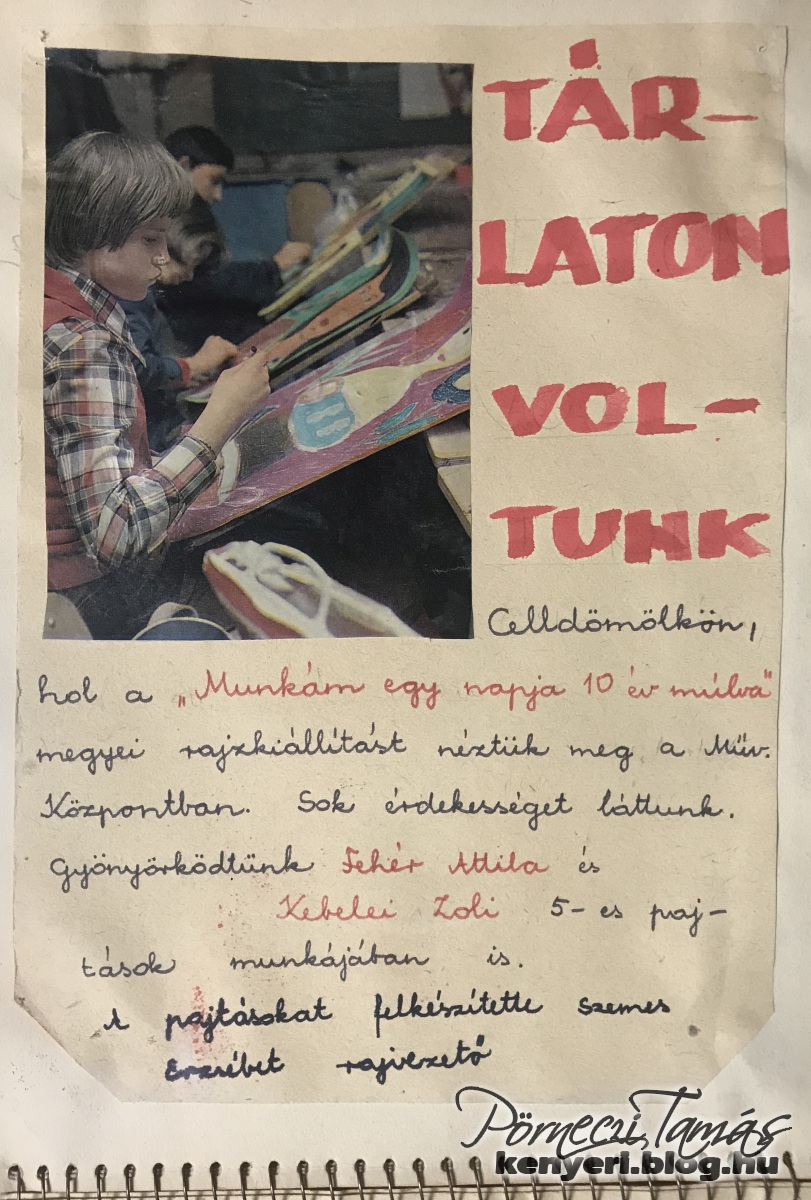 TÁR-
LATON
VOL-
TUNK
Celldömölkön,
hol a „Munkám egy napja 10 év múlva"
megyei rajzkiállítást néztük meg a Műv.
Központban. Sok érdekességet láttunk.
Gyönyörködtünk Fehér Attila és
Kebelei Zoli 5-es paj-
tások munkájában is.
A pajtásokat felkészítette Szemes
Erzsébet rajvezető
Pörneczi Tamás
kenyeri.blog.hu